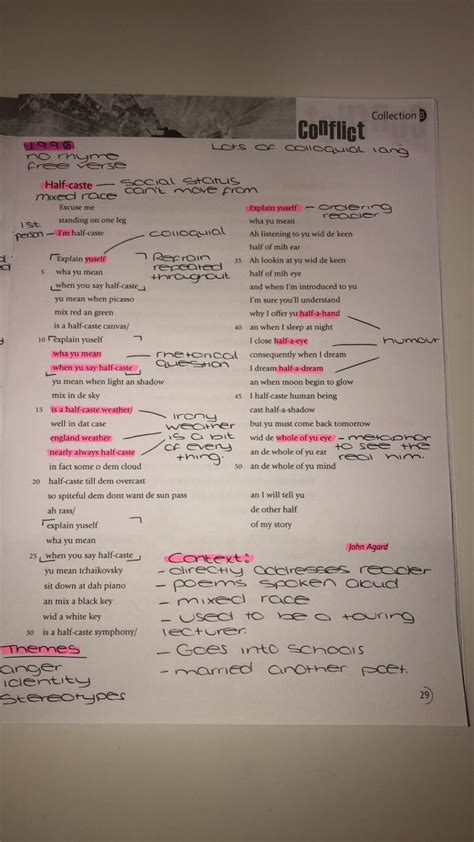 Collection 8
Conflict
1996
no rhyme
free verse
Lots of colloquial lang
Half-caste — social status
can't move from
mixed race
Excuse me
standing on one leg
1st
person — I'm half-caste
colloquial
Explain yuself
Refrain
repeated
throughout
5 wha yu mean
when you say half-caste
yu mean when picasso
mix red an green
is a half-caste canvas/
10 explain yuself
wha yu mean
— rhetorical
question
when yu say half-caste
yu mean when light an shadow
mix in de sky
15 is a half-caste weather/
well in dat case
england weather
nearly always half-caste
irony
weather
is a bit
of every
thing.
in fact some o dem cloud
20 half-caste till dem overcast
so spiteful dem dont want de sun pass
ah rass/
explain yuself
wha yu mean
25 when you say half-caste
yu mean tchaikovsky
sit down at dah piano
an mix a black key
wid a white key
30 is a half-caste symphony/
Explain yuself — ordering
reader
wha yu mean
Ah listening to yu wid de keen
half of mih ear
35 Ah lookin at yu wid de keen
half of mih eye
and when I'm introduced to yu
I'm sure you'll understand
why I offer yu half-a-hand
40 an when I sleep at night
I close half-a-eye
humour
consequently when I dream
I dream half-a-dream
an when moon begin to glow
45 I half-caste human being
cast half-a-shadow
but yu must come back tomorrow
wid de whole of yu eye — metaphor
to see the
real him.
an de whole of yu ear
50 an de whole of yu mind
an I will tell yu
de other half
of my story
John Agard
Context:
- directly addresses reader
- poems spoken aloud
- mixed race
- used to be a touring
lecturer.
- Goes into schools
- married another poet.
Themes
anger
identity
Stereotypes
29